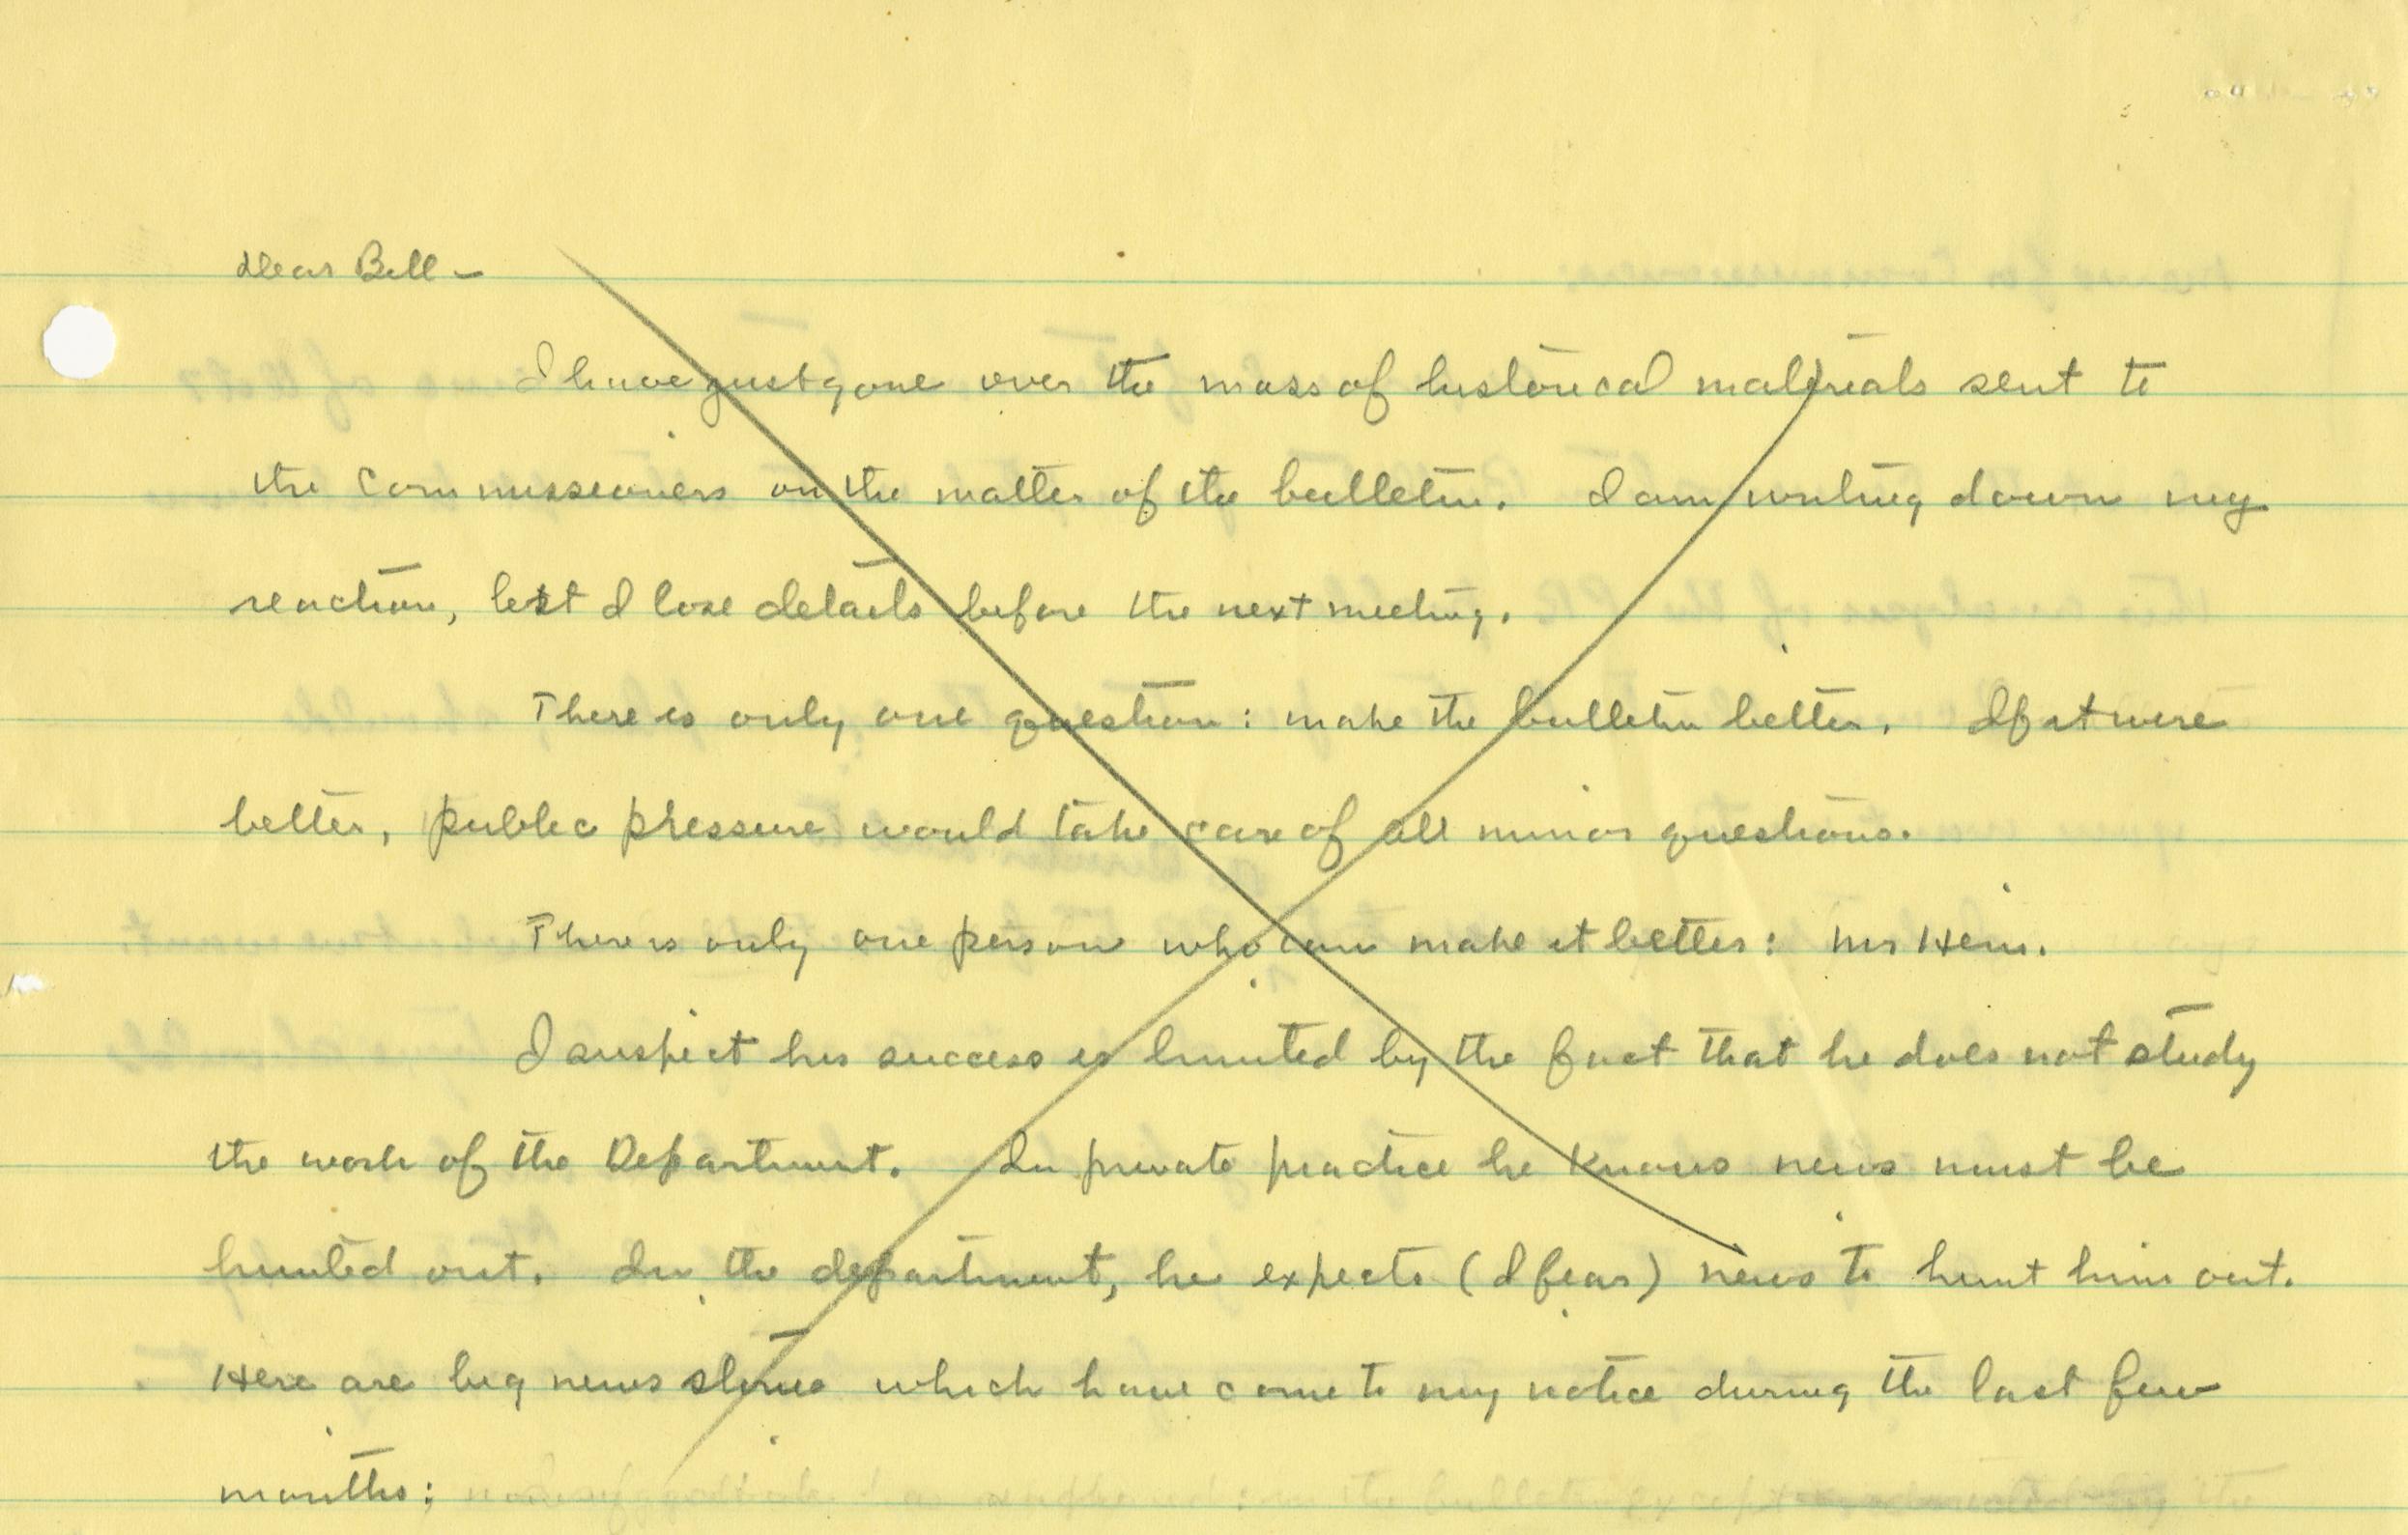 Dear Bill –
I have just gone over the mass of historical materials sent to
the Commissioners on the matter of the bulletin. I am writing down my
reaction, lest I lose details before the next meeting.
There is only one question: make the bulletin better. If it were
better, public pressure would take care of all minor questions.
There is only one person who can make it better: Mr Hein.
I suspect his success is limited by the fact that he does not study
the work of the Department. In private practice he knows news must be
hunted out. In the department, he expects (I fear) news to hunt him out.
Here are big news stories which have come to my notice during the last few
months: in the bulletin except the